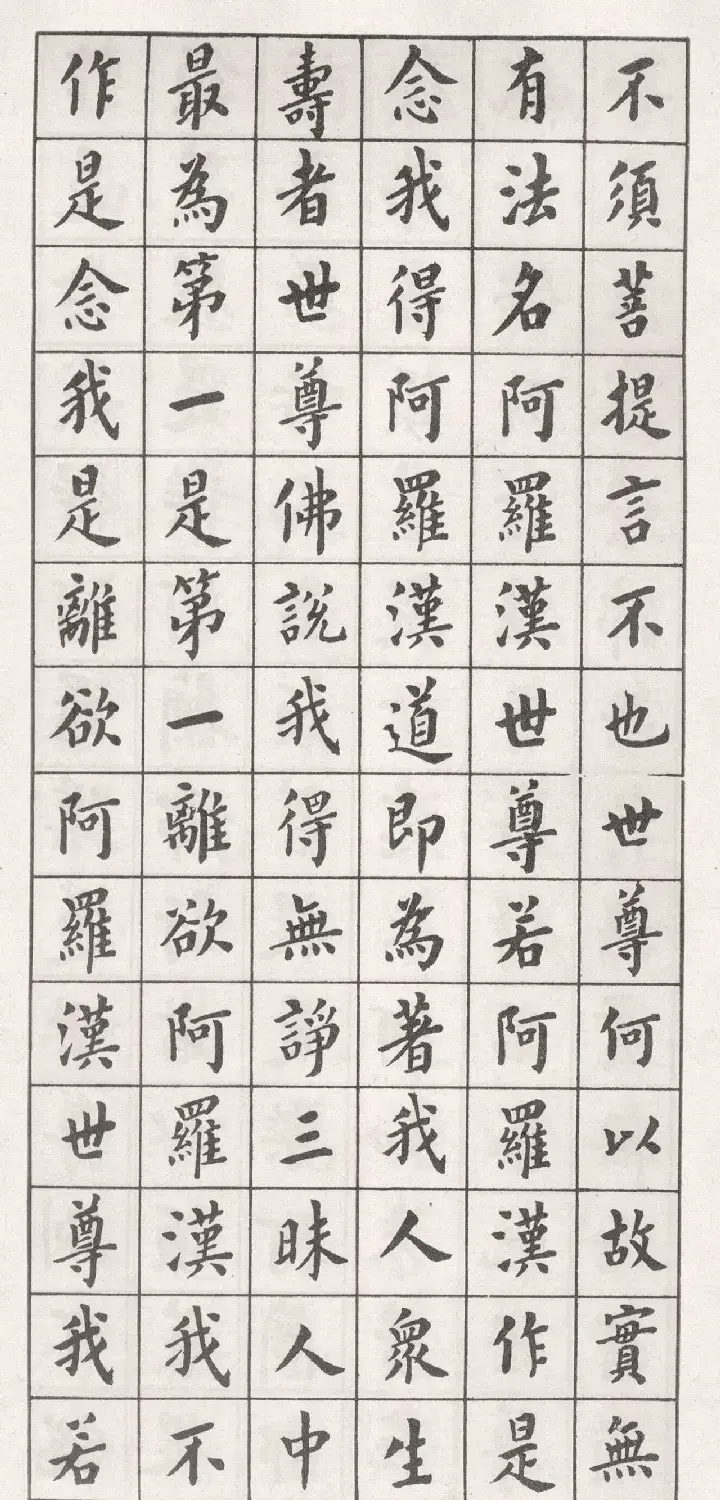 不須菩提言不也世尊何以故實無
有法名阿羅漢世尊若阿羅漢作是
念我得阿羅漢道即為著我人眾生
壽者世尊佛說我得無諍三昧人中
最為第一是第一離欲阿羅漢我不
作是念我是離欲阿羅漢世尊我若